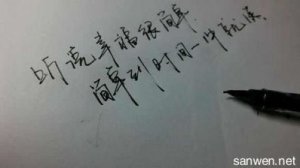 听说幸福很简单
简单到时间一冲就淡。
sanwen.net